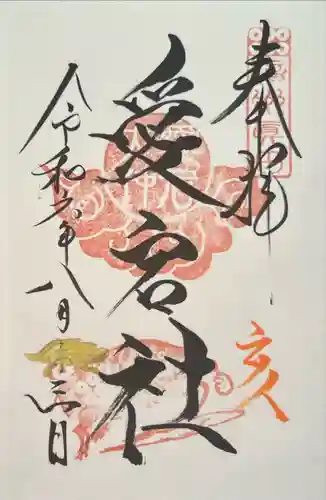 奉拝
愛宕社
亥
令和六年八月三日